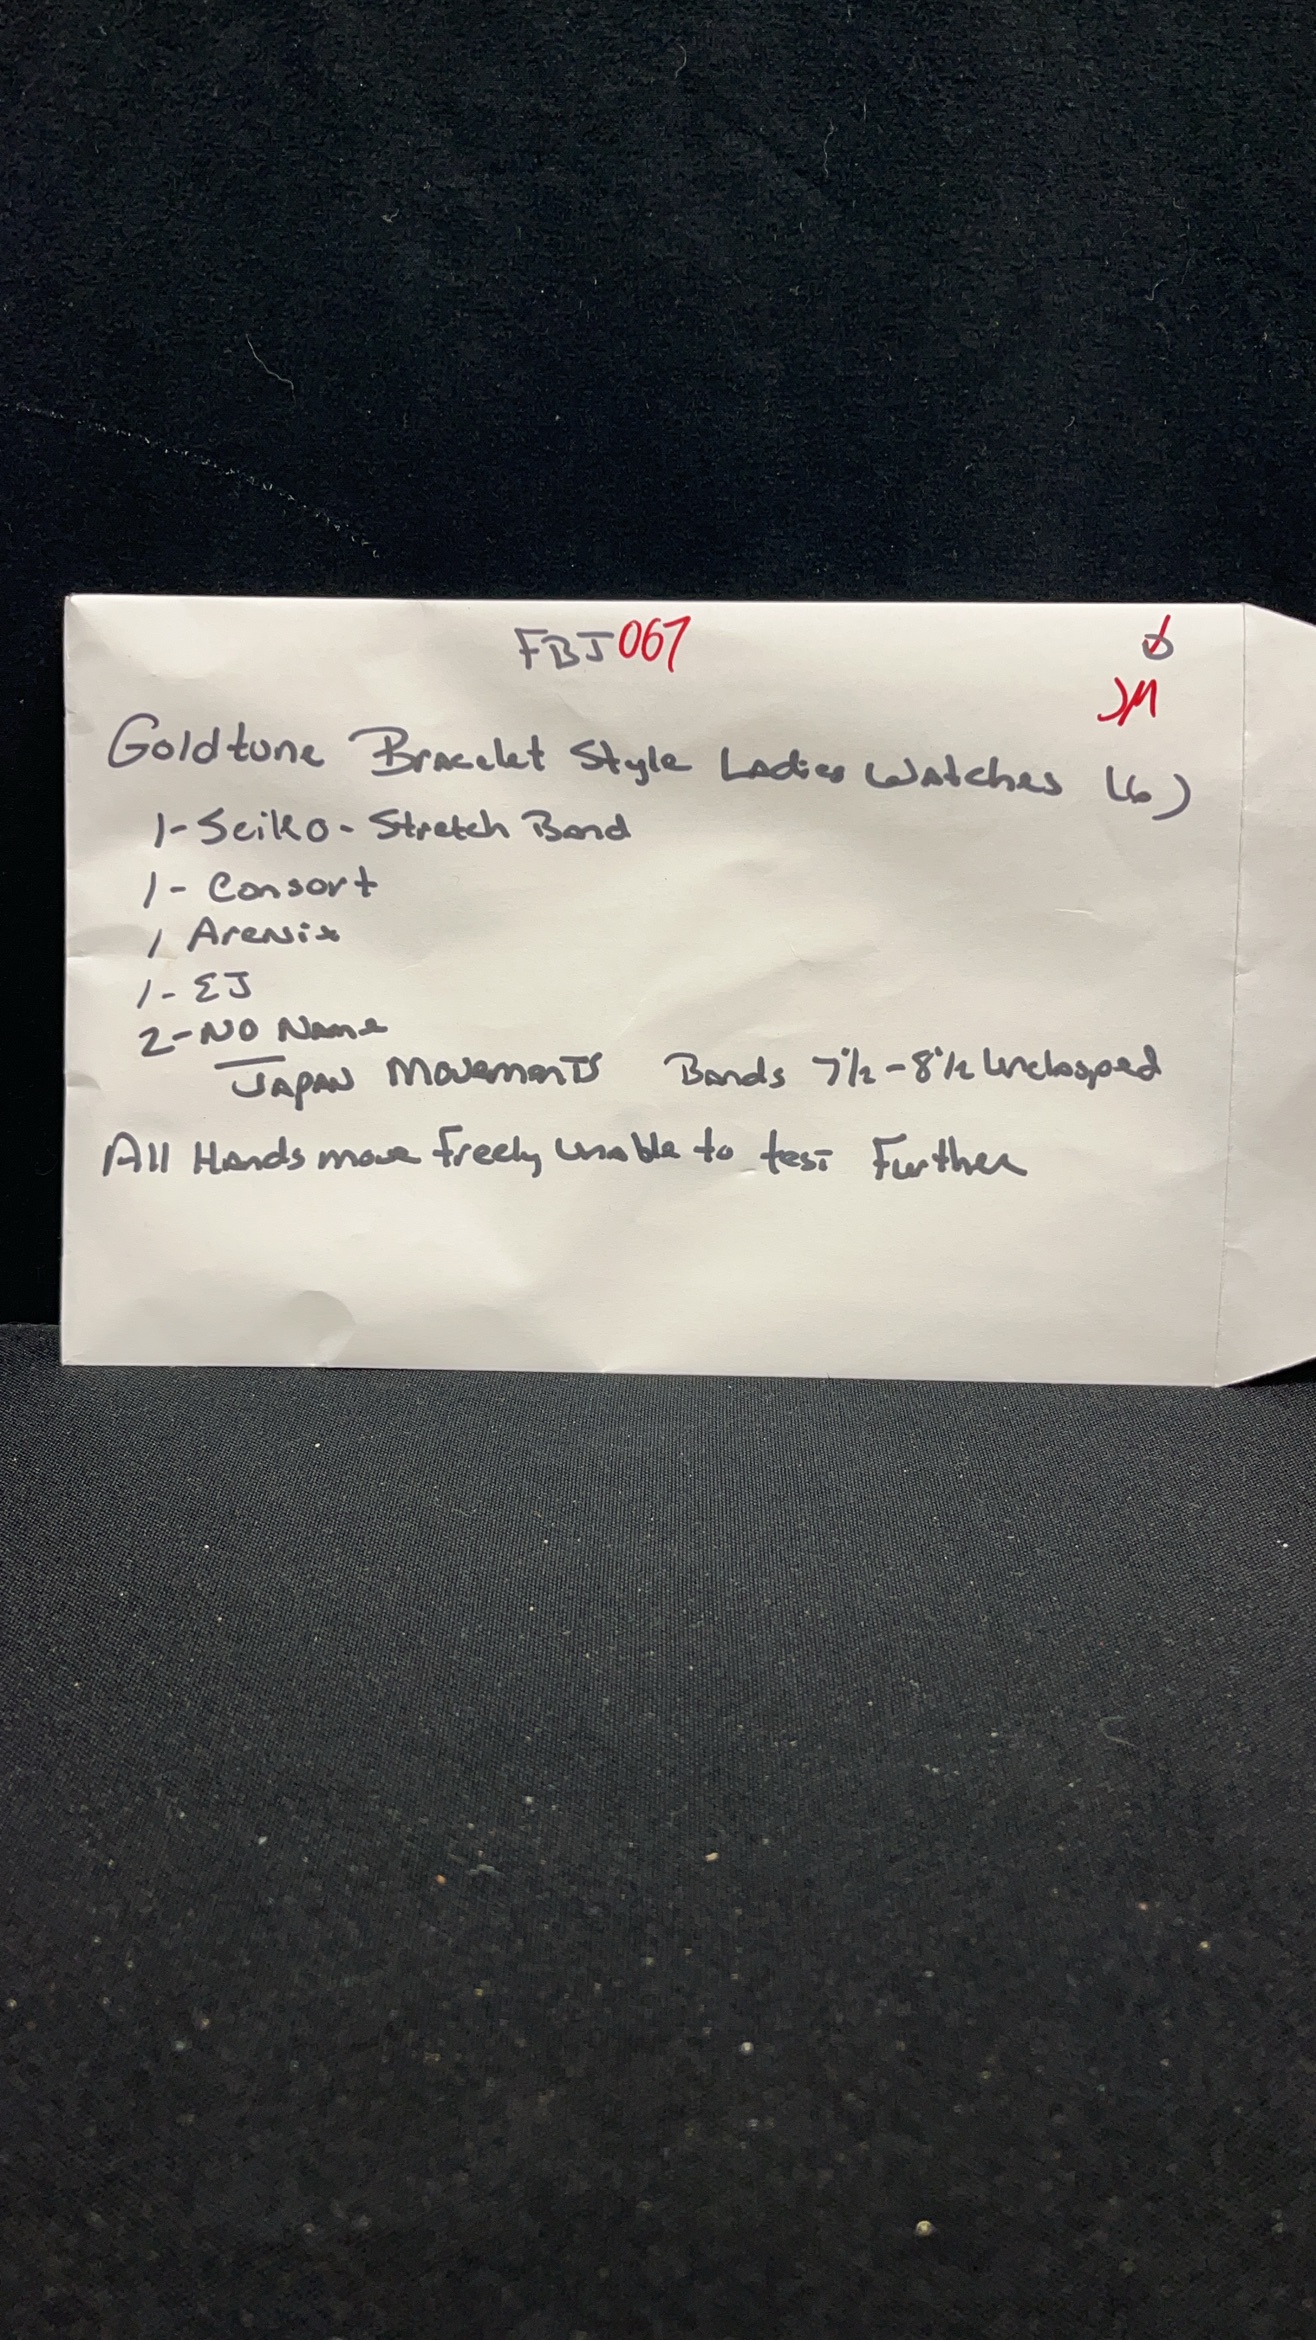 FBJ067
JM
Goldtone Bracelet Style Ladies Watches (6)
1-Seiko-Stretch Band
1-Consort
1 Arenix
1-EJ
2-NO Name
Japan Movements Bands 7 1/2-8 1/2 Unclasped
All Hands move Freely unable to test Further